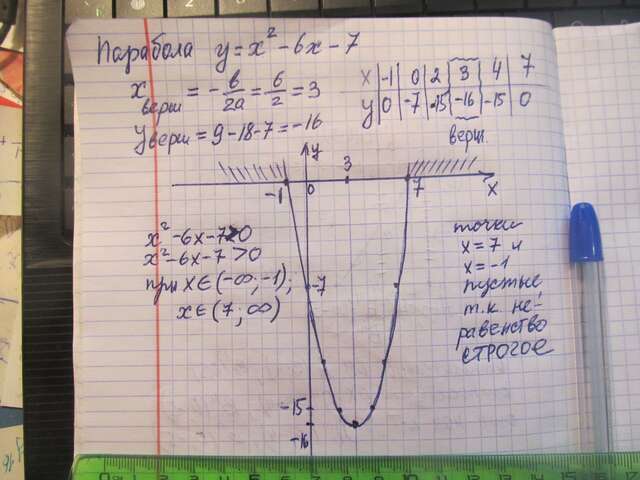 Парабола y = x² - 6x - 7
x верш = - b/2a = 6/2 = 3
y верш = 9 - 18 - 7 = -16
x | -1 | 0 | 2 | 3 | 4 | 7
y | 0 | -7 | -15 | -16 | -15 | 0
верш.
y
3
-1 0 7 x
x² - 6x - 7 > 0
x² - 6x - 7 > 0
при x ∈ (-∞, -1);
x ∈ (7; ∞)
-7
-15
-16
точки
x = 7 и
x = -1
пустые
т.к. не-
равенство
строгое
0 1 2 3 4 5 6 7 8 9 10 11 12 13 14 15 16 17